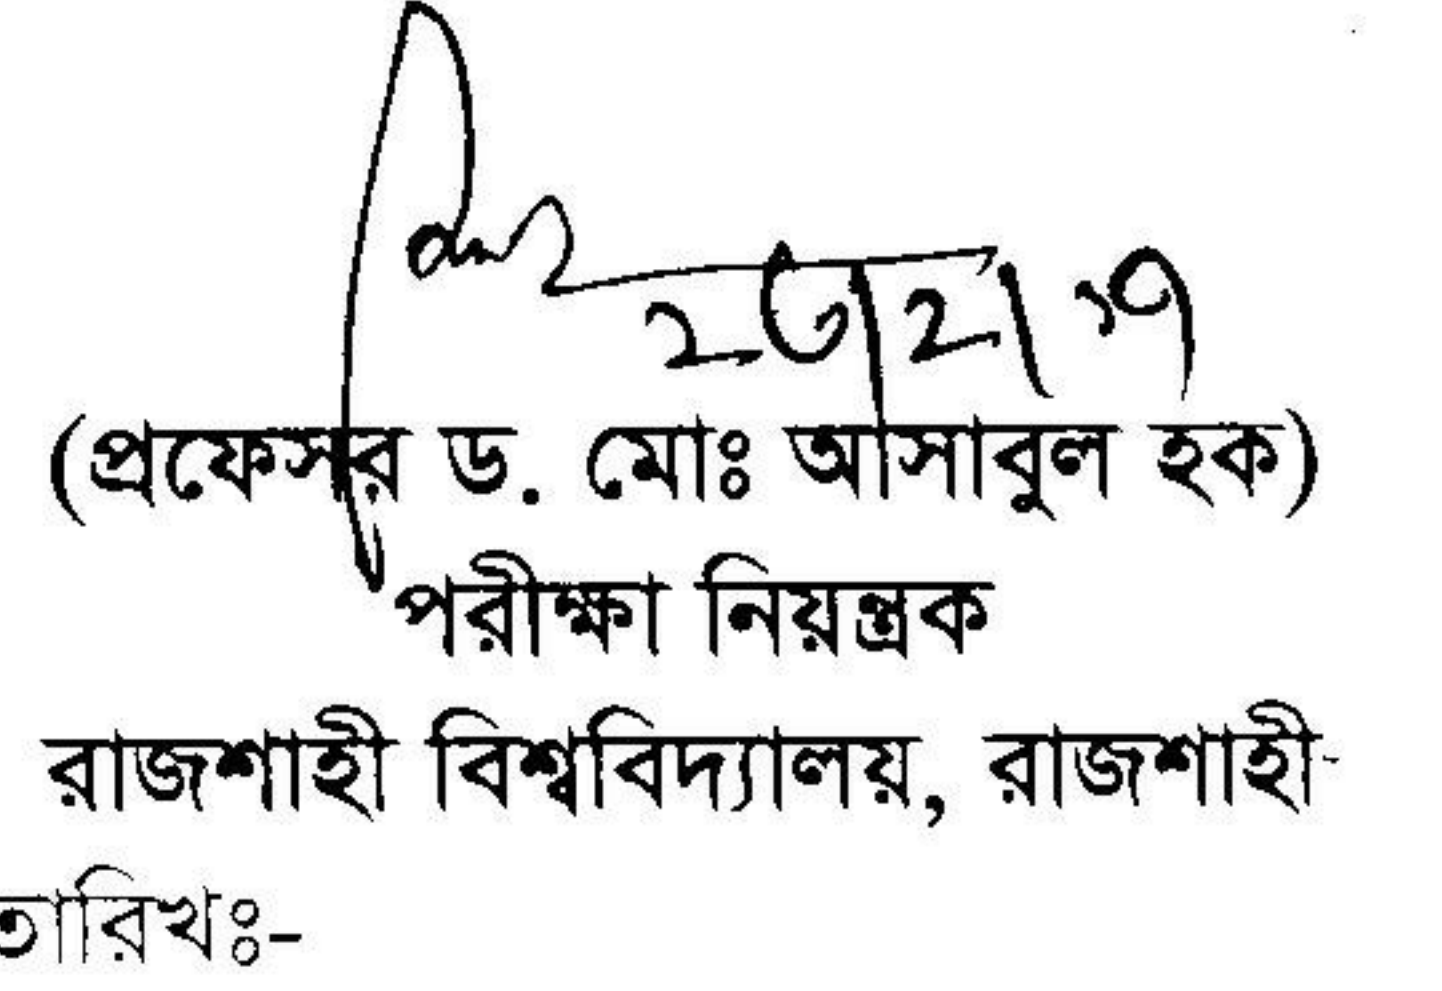 ২৬/২/১৭
(প্রফেসর ড. মোঃ আসাবুল হক)
পরীক্ষা নিয়ন্ত্রক
রাজশাহী বিশ্ববিদ্যালয়, রাজশাহী
তারিখঃ-